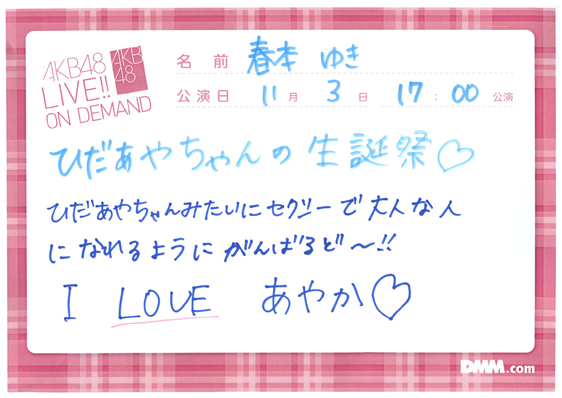 AKB48
LIVE!!
ON DEMAND
AKB
48
名前 春本 ゆき
公演日 11月 3日 17:00公演
ひだあやちゃんの生誕祭♡
ひだあやちゃんみたいにセクシーで大人な人
になれるようにがんばるど〜!!
I LOVE あやか♡
DMM.com